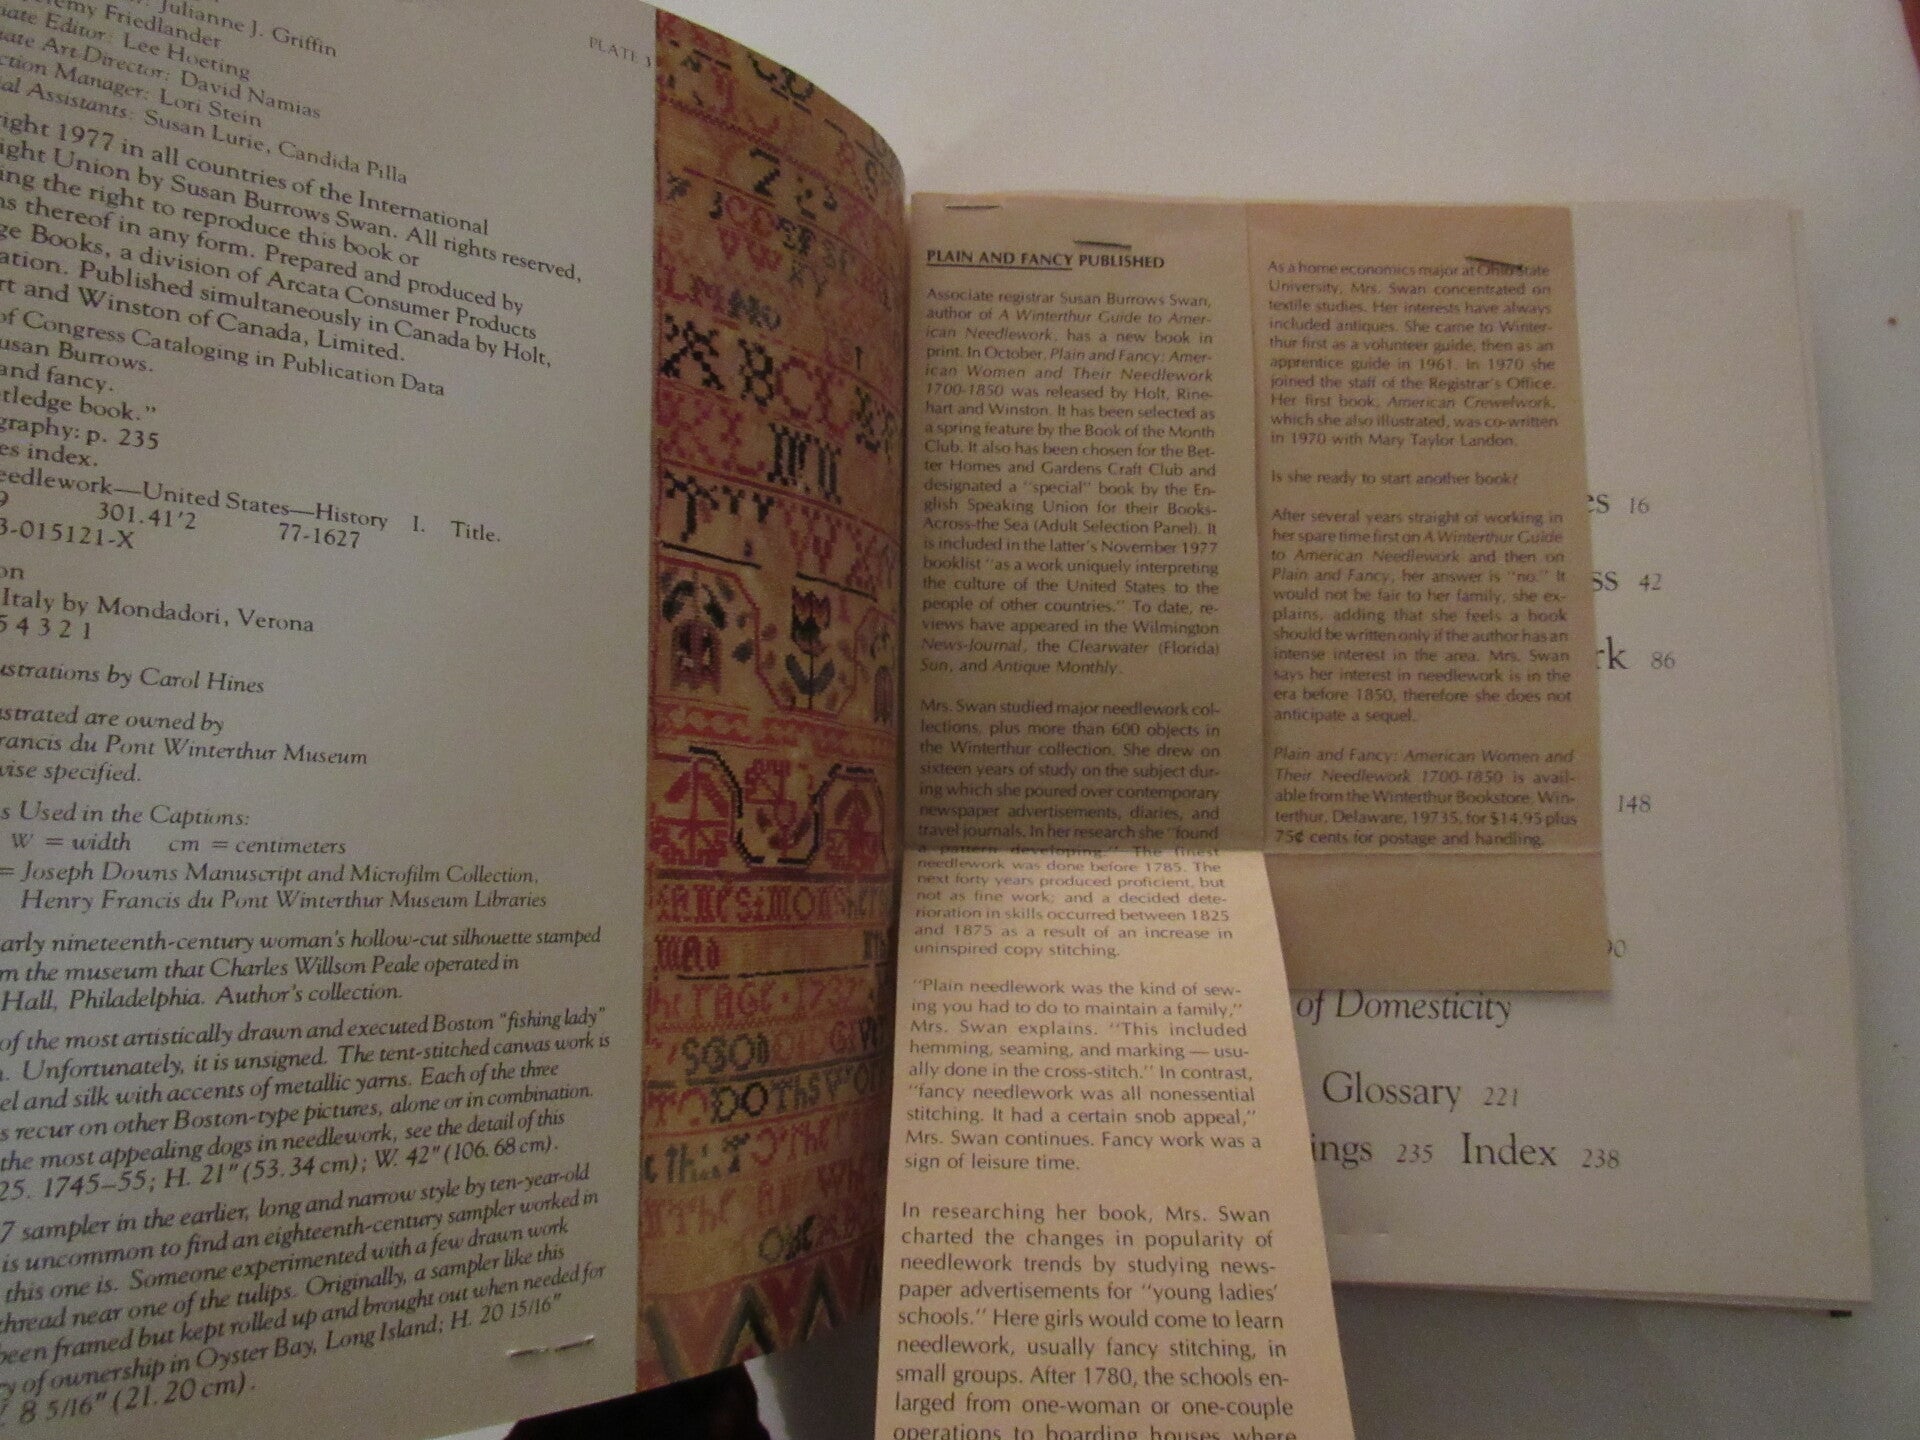 : Julianne J. Griffin
remy Friedlander
iate Editor: Lee Hoeting
iate Art Director: David Namias
ction Manager: Lori Stein
al Assistants: Susan Lurie, Candida Pilla
right 1977 in all countries of the International
ight Union by Susan Burrows Swan. All rights reserved,
ing the right to reproduce this book or
ns thereof in any form. Prepared and produced by
ge Books, a division of Arcata Consumer Products
ation. Published simultaneously in Canada by Holt,
rt and Winston of Canada, Limited.
of Congress Cataloging in Publication Data
usan Burrows.
and fancy.
tledge book."
graphy: p. 235
es index.
eedlework—United States—History I. Title.
9 301.41'2 77-1627
3-015121-X
on
Italy by Mondadori, Verona
5 4 3 2 1
ustrations by Carol Hines
ustrated are owned by
rancis du Pont Winterthur Museum
wise specified.
s Used in the Captions:
W = width cm = centimeters
= Joseph Downs Manuscript and Microfilm Collection,
Henry Francis du Pont Winterthur Museum Libraries
arly nineteenth-century woman's hollow-cut silhouette stamped
m the museum that Charles Willson Peale operated in
Hall, Philadelphia. Author's collection.
of the most artistically drawn and executed Boston "fishing lady"
. Unfortunately, it is unsigned. The tent-stitched canvas work is
el and silk with accents of metallic yarns. Each of the three
s recur on other Boston-type pictures, alone or in combination.
the most appealing dogs in needlework, see the detail of this
25. 1745–55; H. 21" (53.34 cm); W. 42" (106.68 cm).
7 sampler in the earlier, long and narrow style by ten-year-old
is uncommon to find an eighteenth-century sampler worked in
this one is. Someone experimented with a few drawn work
thread near one of the tulips. Originally, a sampler like this
been framed but kept rolled up and brought out when needed for
y of ownership in Oyster Bay, Long Island; H. 20 15/16"
8 5/16" (21.20 cm).
PLATE 3
PLAIN AND FANCY PUBLISHED
Associate registrar Susan Burrows Swan,
author of A Winterthur Guide to Amer-
ican Needlework, has a new book in
print. In October, Plain and Fancy: Amer-
ican Women and Their Needlework
1700-1850 was released by Holt, Rine-
hart and Winston. It has been selected as
a spring feature by the Book of the Month
Club. It also has been chosen for the Bet-
ter Homes and Gardens Craft Club and
designated a "special" book by the En-
glish Speaking Union for their Books-
Across-the Sea (Adult Selection Panel). It
is included in the latter's November 1977
booklist "as a work uniquely interpreting
the culture of the United States to the
people of other countries." To date, re-
views have appeared in the Wilmington
News-Journal, the Clearwater (Florida)
Sun, and Antique Monthly.
Mrs. Swan studied major needlework col-
lections, plus more than 600 objects in
the Winterthur collection. She drew on
sixteen years of study on the subject dur-
ing which she poured over contemporary
newspaper advertisements, diaries, and
travel journals. In her research she "found
a pattern developing." The finest
needlework was done before 1785. The
next forty years produced proficient, but
not as fine work; and a decided dete-
rioration in skills occurred between 1825
and 1875 as a result of an increase in
uninspired copy stitching.
"Plain needlework was the kind of sew-
ing you had to do to maintain a family,"
Mrs. Swan explains. "This included
hemming, seaming, and marking — usu-
ally done in the cross-stitch." In contrast,
"fancy needlework was all nonessential
stitching. It had a certain snob appeal,"
Mrs. Swan continues. Fancy work was a
sign of leisure time.
In researching her book, Mrs. Swan
charted the changes in popularity of
needlework trends by studying news-
paper advertisements for "young ladies'
schools." Here girls would come to learn
needlework, usually fancy stitching, in
small groups. After 1780, the schools en-
larged from one-woman or one-couple
operations to boarding houses where
As a home economics major at Ohio State
University, Mrs. Swan concentrated on
textile studies. Her interests have always
included antiques. She came to Winter-
thur first as a volunteer guide, then as an
apprentice guide in 1961. In 1970 she
joined the staff of the Registrar's Office.
Her first book, American Crewelwork,
which she also illustrated, was co-written
in 1970 with Mary Taylor Landon.
Is she ready to start another book?
After several years straight of working in
her spare time first on A Winterthur Guide
to American Needlework and then on
Plain and Fancy, her answer is "no." It
would not be fair to her family, she ex-
plains, adding that she feels a book
should be written only if the author has an
intense interest in the area. Mrs. Swan
says her interest in needlework is in the
era before 1850, therefore she does not
anticipate a sequel.
Plain and Fancy: American Women and
Their Needlework 1700-1850 is avail-
able from the Winterthur Bookstore, Win-
terthur, Delaware, 19735, for $14.95 plus
75¢ cents for postage and handling.
es 16
ss 42
rk 86
148
90
of Domesticity
Glossary 221
ings 235 Index 238